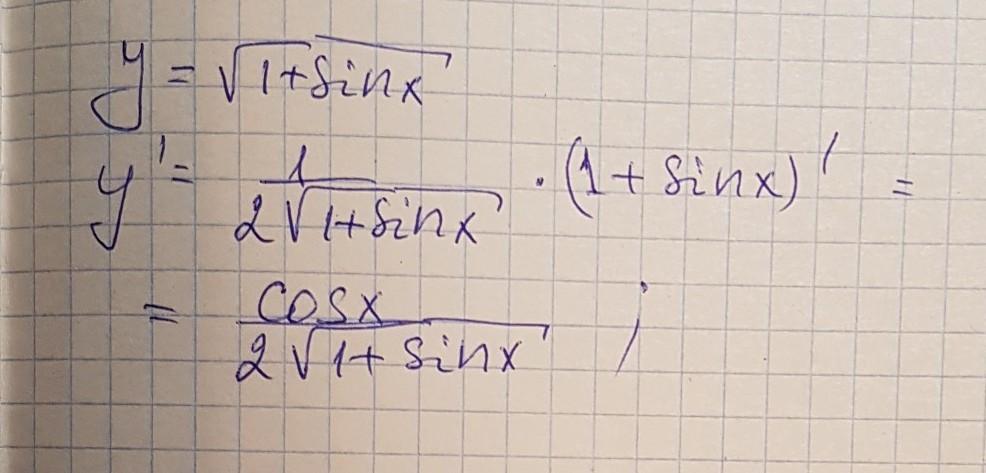 y = √(1+sinx)
y' = 1/(2√(1+sinx)) · (1 + sinx)' =
= cosx/(2√(1+sinx)) ;